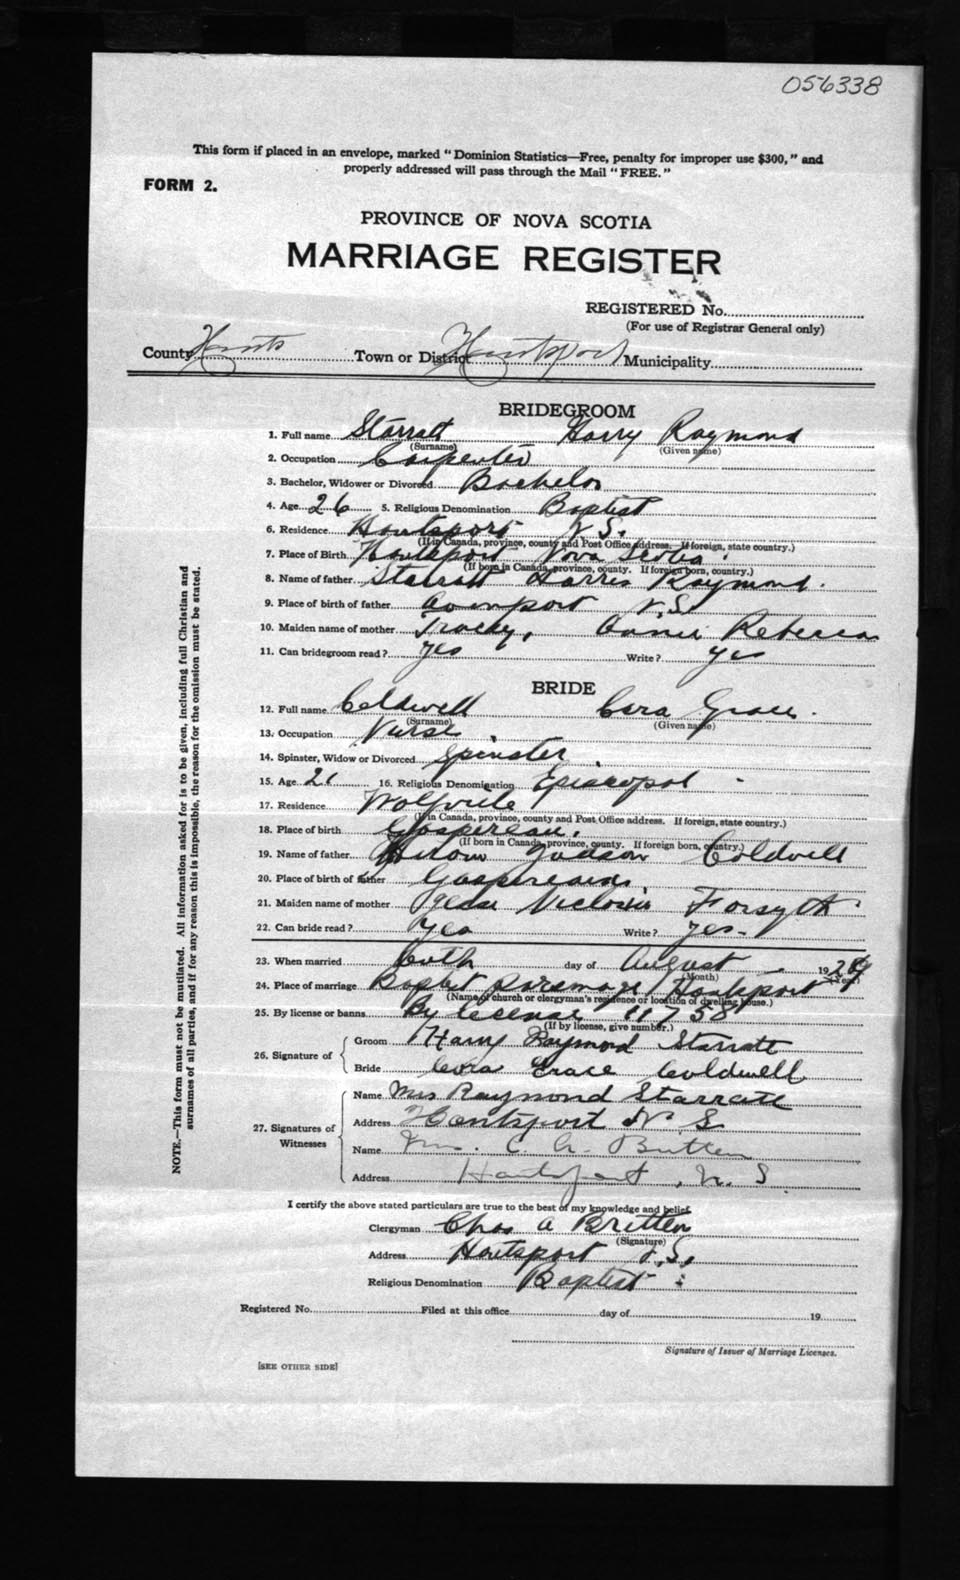 056338
This form if placed in an envelope, marked "Dominion Statistics—Free, penalty for improper use $300," and
properly addressed will pass through the Mail "FREE."
FORM 2.
PROVINCE OF NOVA SCOTIA
MARRIAGE REGISTER
REGISTERED No.
(For use of Registrar General only)
County Hants Town or District Hantsport Municipality
BRIDEGROOM
1. Full name Starratt Harry Raymond
(Surname) (Given name)
2. Occupation Carpenter
3. Bachelor, Widower or Divorced Bachelor
4. Age 26 5. Religious Denomination Baptist
6. Residence Hantsport N.S.
(If in Canada, province, county and Post Office address. If foreign, state country.)
7. Place of Birth Hantsport Nova Scotia
(If born in Canada, province, county. If foreign born, country.)
8. Name of father Starratt Harris Raymond.
9. Place of birth of father N.S.
10. Maiden name of mother Rebecca
11. Can bridegroom read? yes Write? yes
BRIDE
12. Full name Coldwell Cora Grace.
(Surname) (Given name)
13. Occupation Nurse
14. Spinster, Widow or Divorced Spinster
15. Age 21 16. Religious Denomination Episcopal
17. Residence Wolfville
(If in Canada, province, county and Post Office address. If foreign, state country.)
18. Place of birth Gaspereau.
(If born in Canada, province, county. If foreign born, country.)
19. Name of father Hiram Judson Coldwell
20. Place of birth of father Gaspereau.
21. Maiden name of mother Victoria Forsyth
22. Can bride read? Yes Write? yes.
23. When married day of August 192
(Month) (Year)
24. Place of marriage Baptist parsonage Hantsport
(Name of church or clergyman's residence or location of dwelling house.)
25. By license or banns By license 11758
(If by license, give number.)
26. Signature of Groom Harry Raymond Starratt
Bride Cora Grace Coldwell
27. Signatures of Witnesses Name Mrs Raymond Starratt
Address Hantsport N.S.
Name C. A. Britten
Address Hantsport, N. S.
I certify the above stated particulars are true to the best of my knowledge and belief.
Clergyman Chas A Britten
(Signature)
Address Hantsport N.S.
Religious Denomination Baptist
Registered No. Filed at this office day of 19
Signature of Issuer of Marriage Licenses.
[SEE OTHER SIDE]
NOTE.—This form must not be mutilated. All information asked for is to be given, including full Christian and
surnames of all parties, and if for any reason this is impossible, the reason for the omission must be stated.